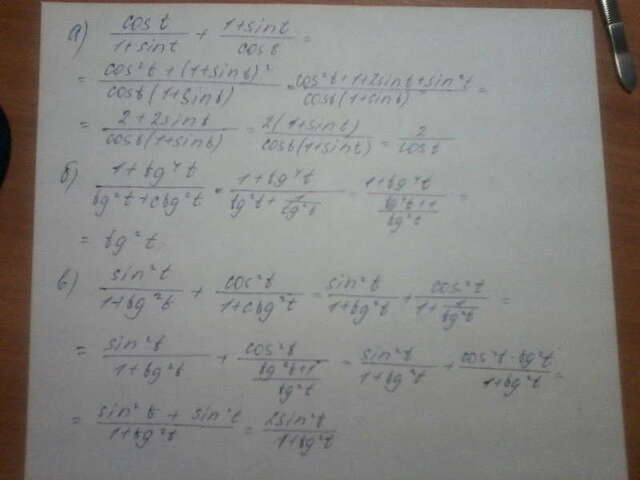 а) cos t / (1+sin t) + (1+sin t) / cos t =
= (cos²t + (1+sin t)²) / (cos t (1+sin t)) = (cos²t + 1 + 2sin t + sin²t) / (cos t (1+sin t)) =
= (2+2sin t) / (cos t (1+sin t)) = 2(1+sin t) / (cos t (1+sin t)) = 2 / cos t
б) (1+tg⁴t) / (tg²t + ctg²t) = (1+tg⁴t) / (tg²t + 1/tg²t) = (1+tg⁴t) / ((tg²t+1)/tg²t) =
= tg²t
в) sin²t / (1+tg²t) + cos²t / (1+ctg²t) = sin²t / (1+tg²t) + cos²t / (1 + 1/tg²t) =
= sin²t / (1+tg²t) + cos²t / ((tg²t+1)/tg²t) = sin²t / (1+tg²t) + (cos²t · tg²t) / (1+tg²t) =
= (sin²t + sin²t) / (1+tg²t) = 2sin²t / (1+tg²t)